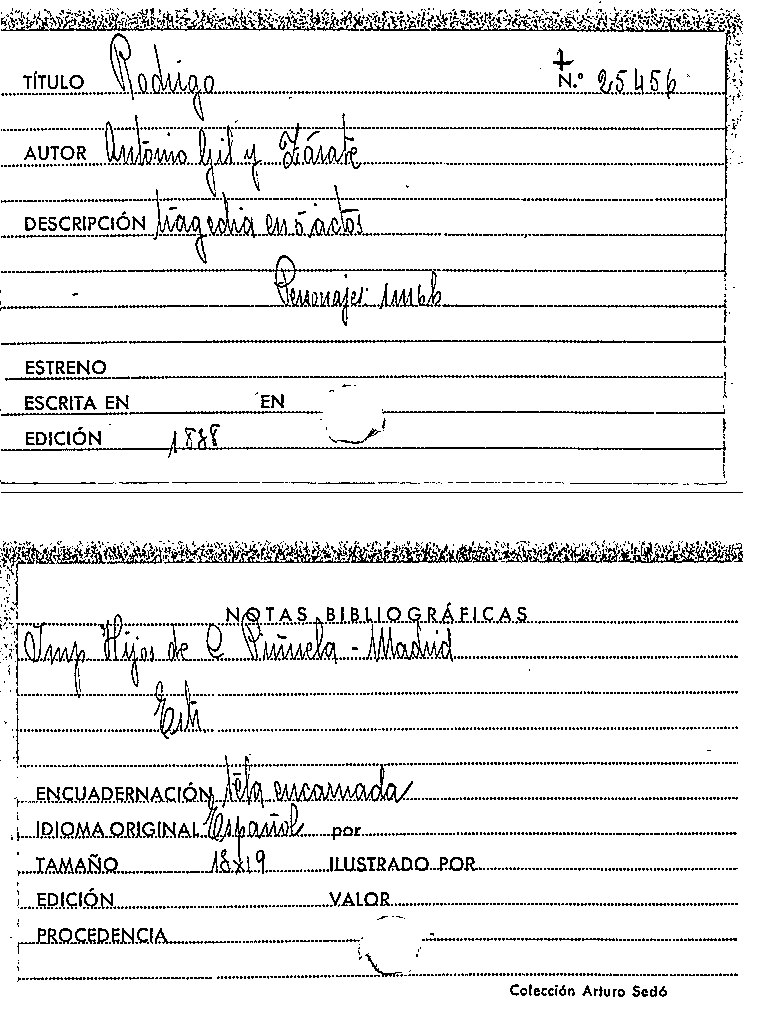 TÍTULO Rodrigo N.º 25456
AUTOR Antonio Gil y Zárate
DESCRIPCIÓN tragedia en 5 actos
Personajes:
ESTRENO
ESCRITA EN EN
EDICIÓN 1838
NOTAS BIBLIOGRÁFICAS
Imp Hijos de C Piñuela - Madrid
ENCUADERNACIÓN tela encarnada
IDIOMA ORIGINAL Español por
TAMAÑO 18x19 ILUSTRADO POR
EDICIÓN VALOR
PROCEDENCIA
Colección Arturo Sedó